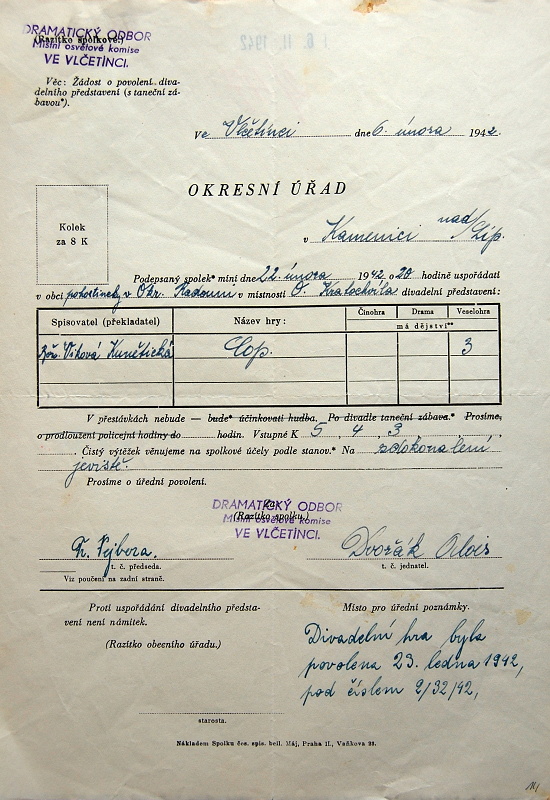 DRAMATICKÝ ODBOR
(Razítko spolkové.)
Místní osvětové komise
VE VLČETÍNCI.
6. II. 1942
Věc: Žádost o povolení diva-
delního představení (s taneční zá-
bavou*).
Ve Vlčetínci dne 6. února 1942.
OKRESNÍ ÚŘAD
Kolek
za 8 K
v Kamenici nad/Lip.
Podepsaný spolek* míní dne 22. února 1942 o 20 hodině uspořádati
v obci pohostinsky v Okr. Radouni v místnosti O. Kratochvíla divadelní představení:
Spisovatel (překladatel) Název hry: Činohra Drama Veselohra
má dějství**
Bož. Viková Kunětická Cop. 3
V přestávkách nebude — bude* účinkovati hudba. Po divadle taneční zábava.* Prosíme,
o prodloužení policejní hodiny do hodin. Vstupné K 5, 4, 3,
Čistý výtěžek věnujeme na spolkové účely podle stanov.* Na zdokonalení
jeviště.
Prosíme o úřední povolení.
DRAMATICKÝ ODBOR
(Razítko spolku.)
Místní osvětové komise
VE VLČETÍNCI.
Fr. Vejbera. Dvořák Alois
t. č. předseda. t. č. jednatel.
Viz poučení na zadní straně.
Proti uspořádání divadelního předsta-
vení není námitek.
(Razítko obecního úřadu.)
Místo pro úřední poznámky.
Divadelní hra byla
povolena 23. ledna 1942,
pod číslem 2/32/42,
starosta.
Nákladem Spolku čes. spis. bell. Máj, Praha II., Vaňkova 23.